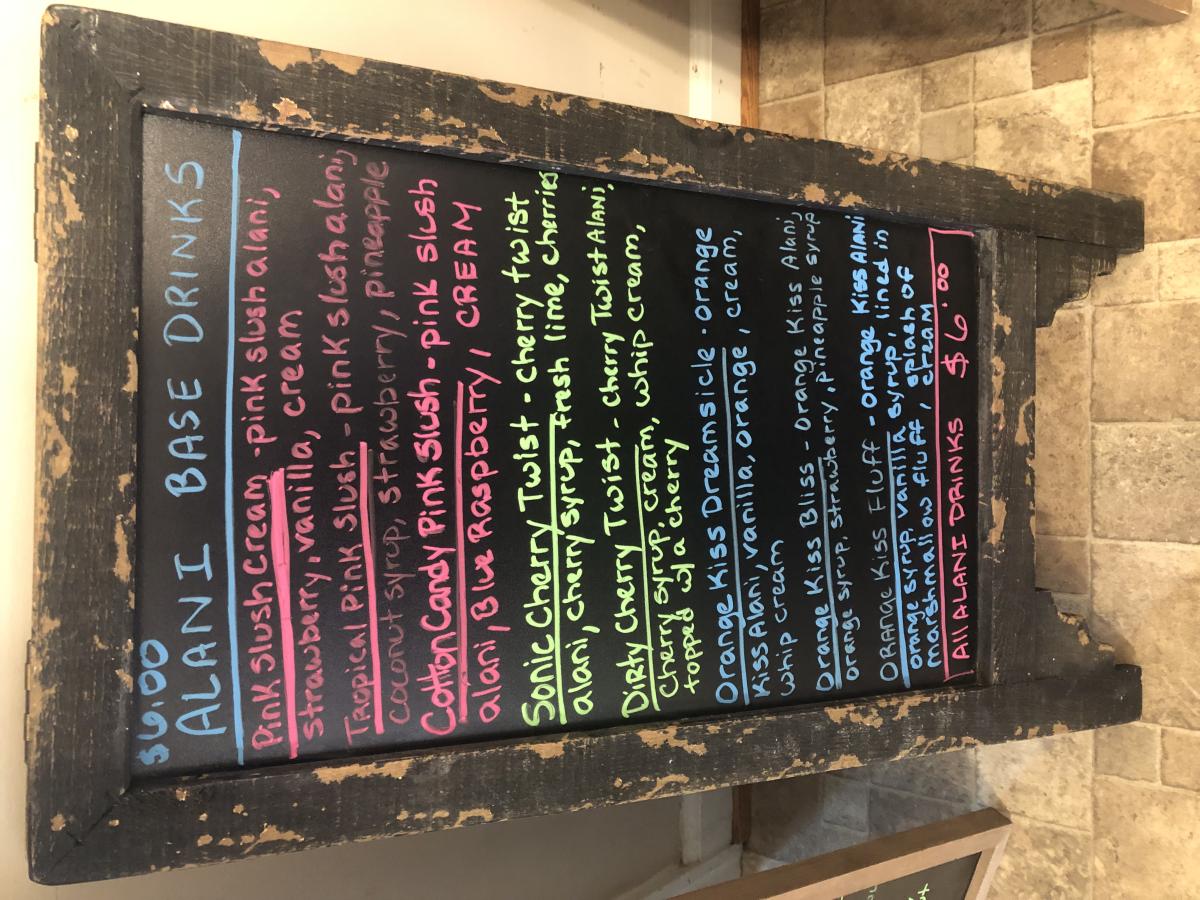 $6.00
ALANI BASE DRINKS
Pink Slush Cream - pink slush alani,
strawberry, vanilla, cream
Tropical Pink Slush - pink slush alani,
coconut syrup, strawberry, pineapple
Cotton Candy Pink Slush - pink slush
alani, Blue Raspberry, CREAM
Sonic Cherry Twist - cherry twist
alani, cherry syrup, fresh lime, cherries
Dirty Cherry Twist - cherry Twist Alani,
Cherry syrup, cream, whip cream,
topped w/ a cherry
Orange Kiss Dreamsicle - orange
Kiss Alani, vanilla, orange, cream,
whip cream
Orange Kiss Bliss - Orange Kiss Alani,
orange syrup, strawberry, pineapple syrup
ORANGE KISS Fluff - orange Kiss ALANI
orange syrup, vanilla syrup, lined in
marshmallow fluff, splash of
cream
All ALANI DRINKS $6.00